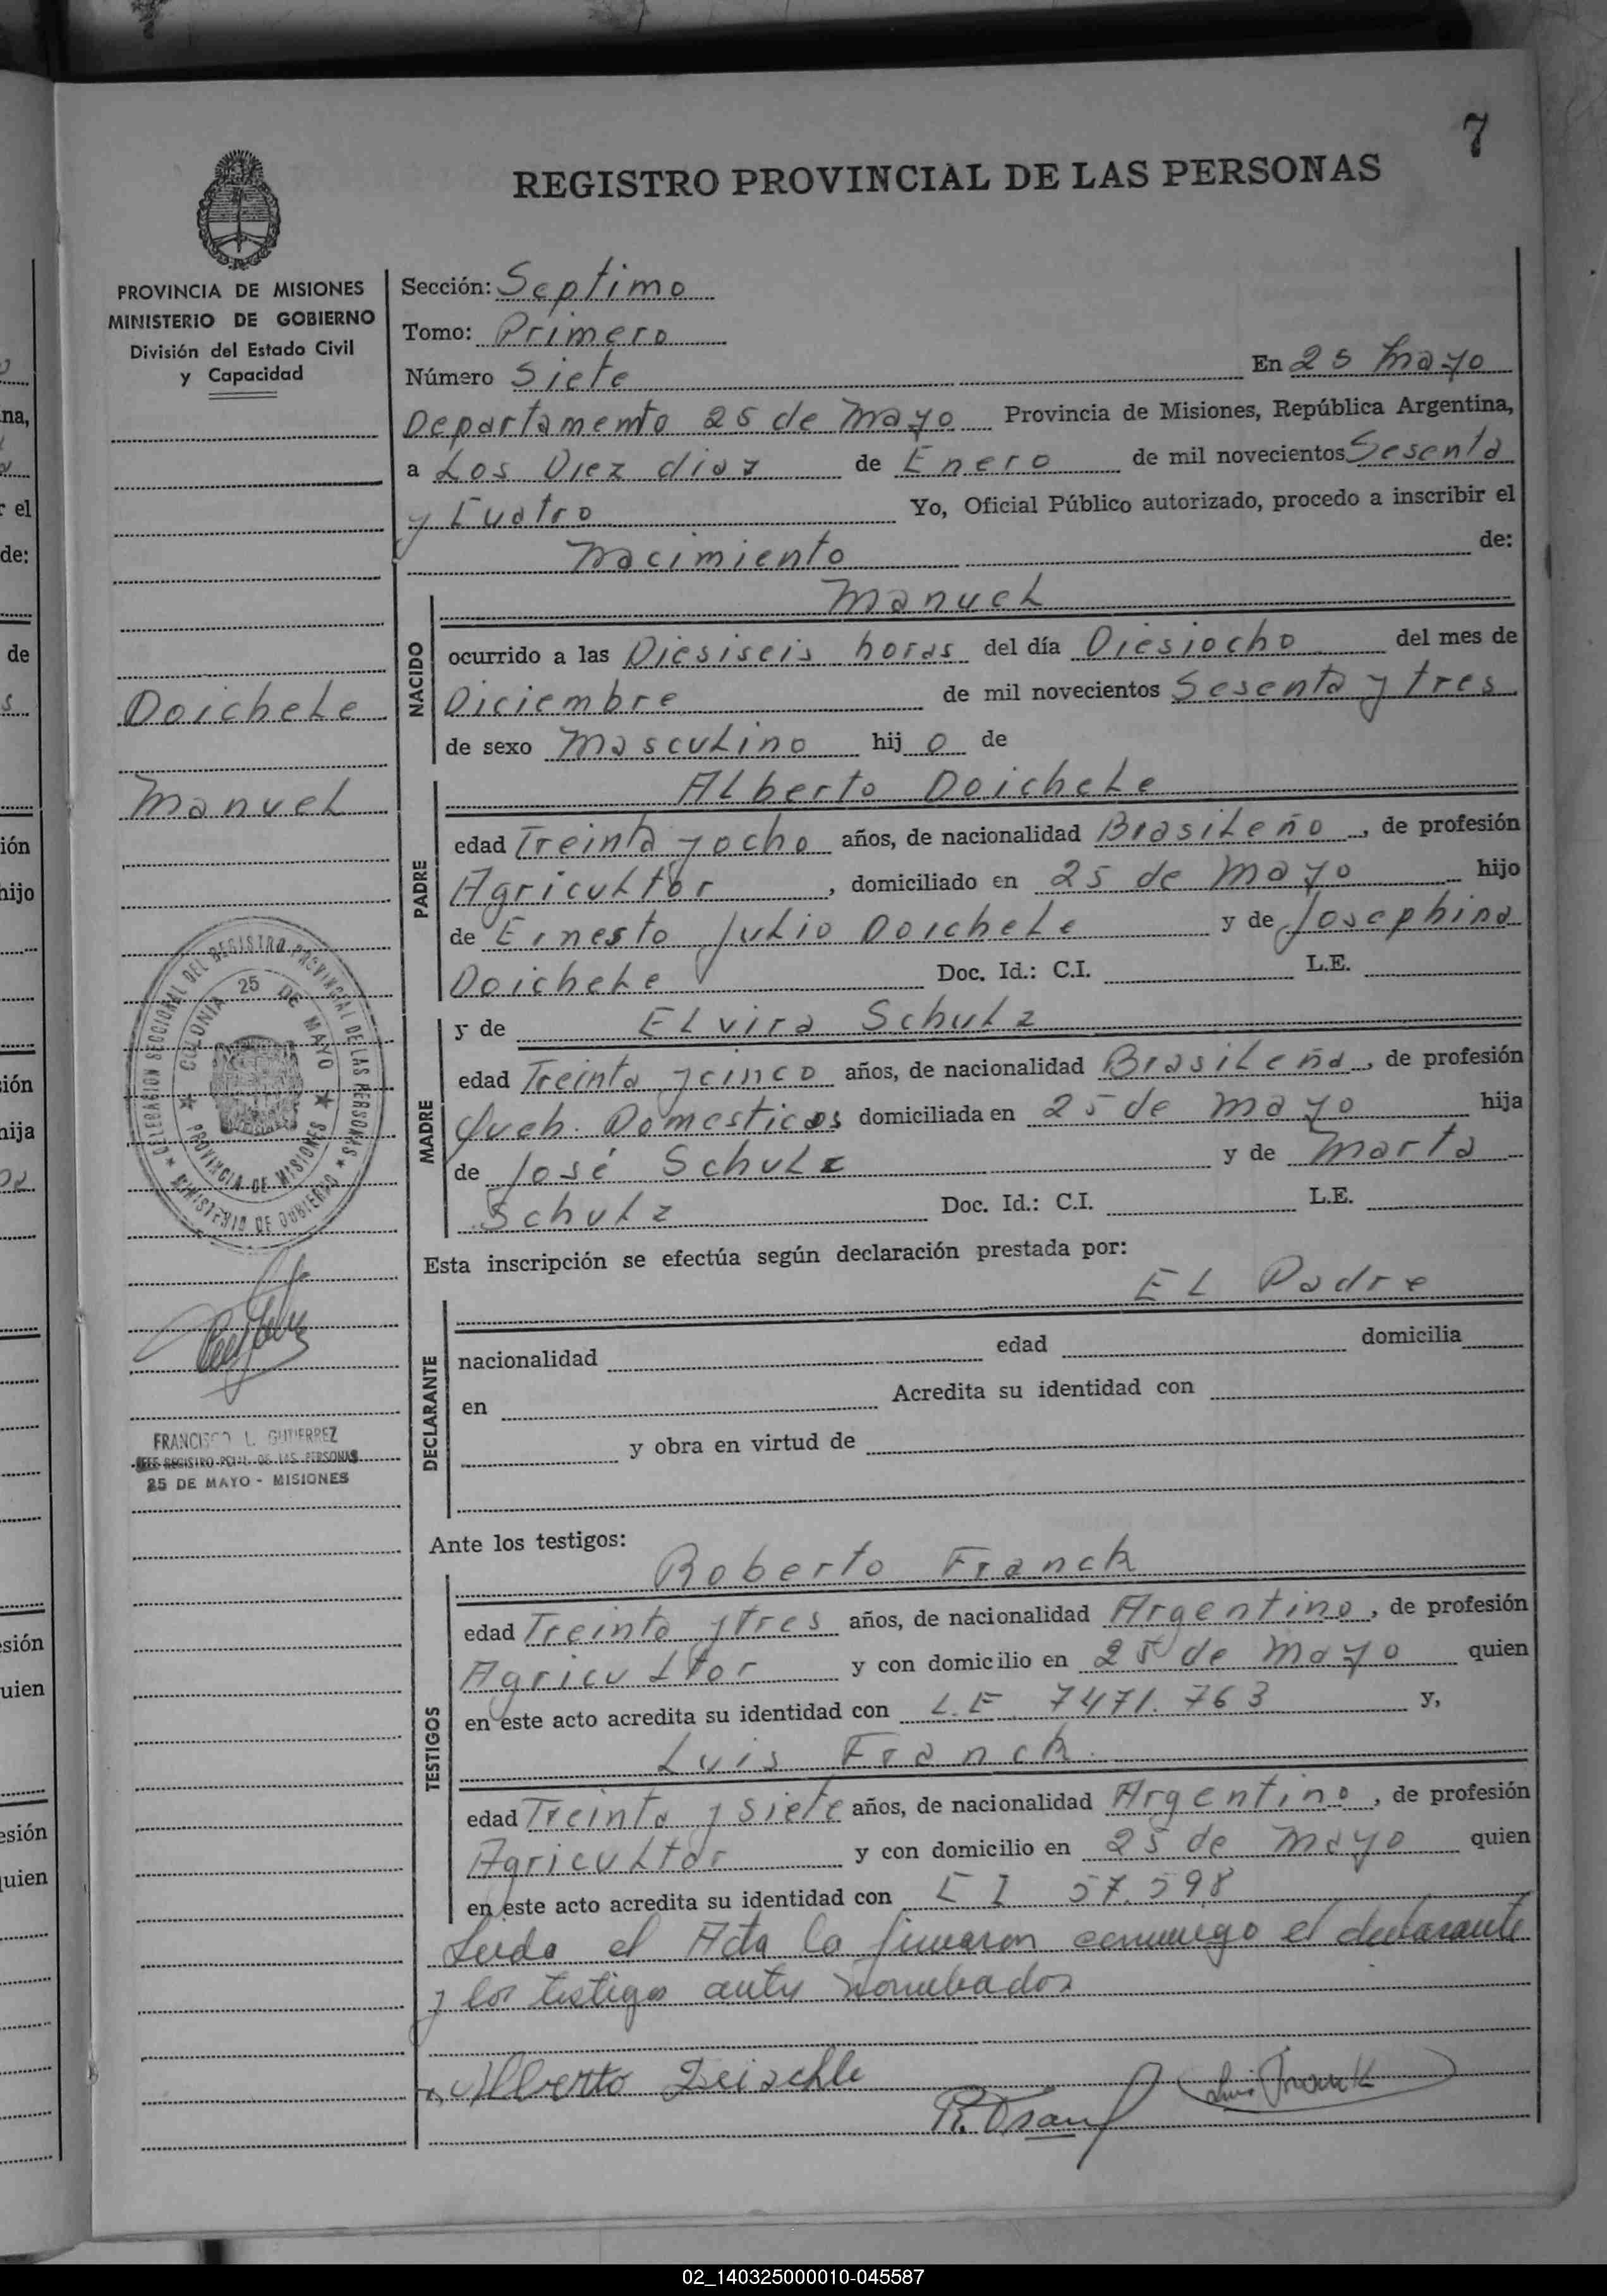 7
REGISTRO PROVINCIAL DE LAS PERSONAS
PROVINCIA DE MISIONES
MINISTERIO DE GOBIERNO
División del Estado Civil
y Capacidad
Doichele
Manuel
DELEGACION SECCIONAL DEL REGISTRO PROVINCIAL DE LAS PERSONAS
★ MINISTERIO DE GOBIERNO ★
COLONIA 25 DE MAYO
★ PROVINCIA DE MISIONES ★
FRANCISCO L. GUTIERREZ
JEFE REGISTRO PCIAL. DE LAS PERSONAS
25 DE MAYO - MISIONES
Sección: Septimo
Tomo: Primero
Número Siete En 25 Mayo
Departamento 25 de Mayo Provincia de Misiones, República Argentina,
a Los Diez dias de Enero de mil novecientos Sesenta
y Cuatro Yo, Oficial Público autorizado, procedo a inscribir el
Nacimiento de:
NACIDO
Manuel
ocurrido a las Diesiseis horas del día Diesiocho del mes de
Diciembre de mil novecientos Sesenta y tres
de sexo Masculino hij o de
PADRE
Alberto Doichele
edad Treinta y ocho años, de nacionalidad Brasileño, de profesión
Agricultor, domiciliado en 25 de Mayo hijo
de Ernesto Julio Doichele y de Josephina
Doichele Doc. Id.: C.I. L.E.
MADRE
y de Elvira Schulz
edad Treinta y cinco años, de nacionalidad Brasileña, de profesión
Queh. Domesticos domiciliada en 25 de Mayo hija
de José Schulz y de Marta
Schulz Doc. Id.: C.I. L.E.
Esta inscripción se efectúa según declaración prestada por:
El Padre
DECLARANTE
nacionalidad edad domicilia
en Acredita su identidad con
y obra en virtud de
Ante los testigos:
TESTIGOS
Roberto Franck
edad Treinta y tres años, de nacionalidad Argentino, de profesión
Agricultor y con domicilio en 25 de Mayo quien
en este acto acredita su identidad con L.E. 7471.763 y,
Luis Franck.
edad Treinta y siete años, de nacionalidad Argentino, de profesión
Agricultor y con domicilio en 25 de Mayo quien
en este acto acredita su identidad con C I 57.598
Leida el Acta la firmaron conmigo el declarante
y los testigos antes nombrados
Alberto Deischle
Luis Franck
02_140325000010-045587